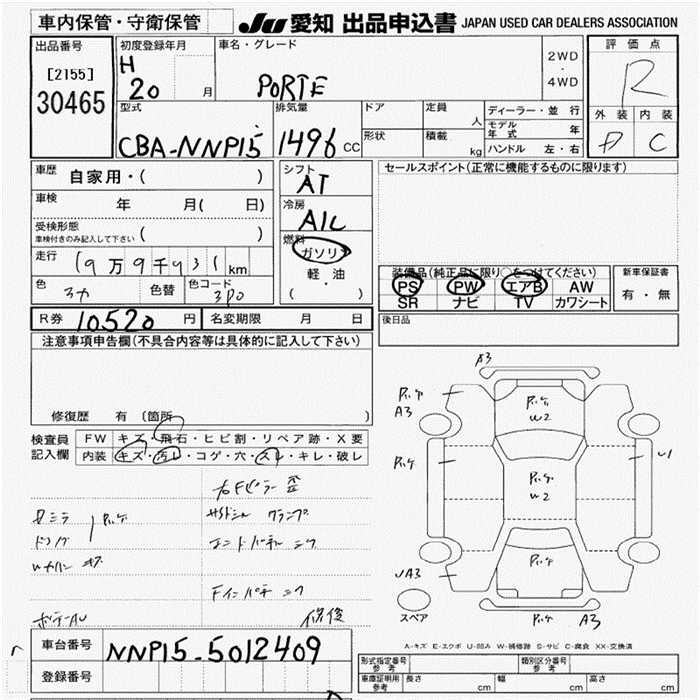 車内保管・守衛保管
JU 愛知 出品申込書 JAPAN USED CAR DEALERS ASSOCIATION
出品番号
[2155]
30465
初度登録年月
H
20 月
車名・グレード
PORTE
2WD
・
4WD
評価点
R
外装 内装
D C
型式
CBA-NNP15
排気量
1496 CC
ドア
定員
人
形状
積載
kg
ディーラー・並行
モデル年式 年
ハンドル 左・右
車歴
自家用・( )
車検
年 月( 日)
受検形態
車検付きのみ記入して下さい
( )
走行
19万9千931 km
色
色替
色コード
3P0
シフト
AT
冷房
A/C
燃料
ガソリン
軽・油
( ・ )
セールスポイント(正常に機能するものに限ります)
装備品(純正品に限り○をつけてください)
PS PW エアB AW
SR ナビ TV カワシート
新車保証書
有・無
R券 10520 円
名変期限 月 日
後日品
注意事項申告欄(不具合内容等は具体的に記入して下さい)
修復歴 有 〔箇所 〕
検査員記入欄
FW キズ・飛石・ヒビ割・リペア跡・X要
内装 キズ・汚レ・コゲ・穴・スレ・キレ・破レ
右Fピラー歪
A3
A3
W2
W2
U1
A3
A3
スペア
A-キズ E-エクボ U-凹み W-補修跡 S-サビ C-腐食 XX-交換済
車台番号
NNP15-5012409
登録番号
型式指定番号
参考
類別区分番号
参考
車庫証明用
参考
長さ cm
幅 cm
高さ cm